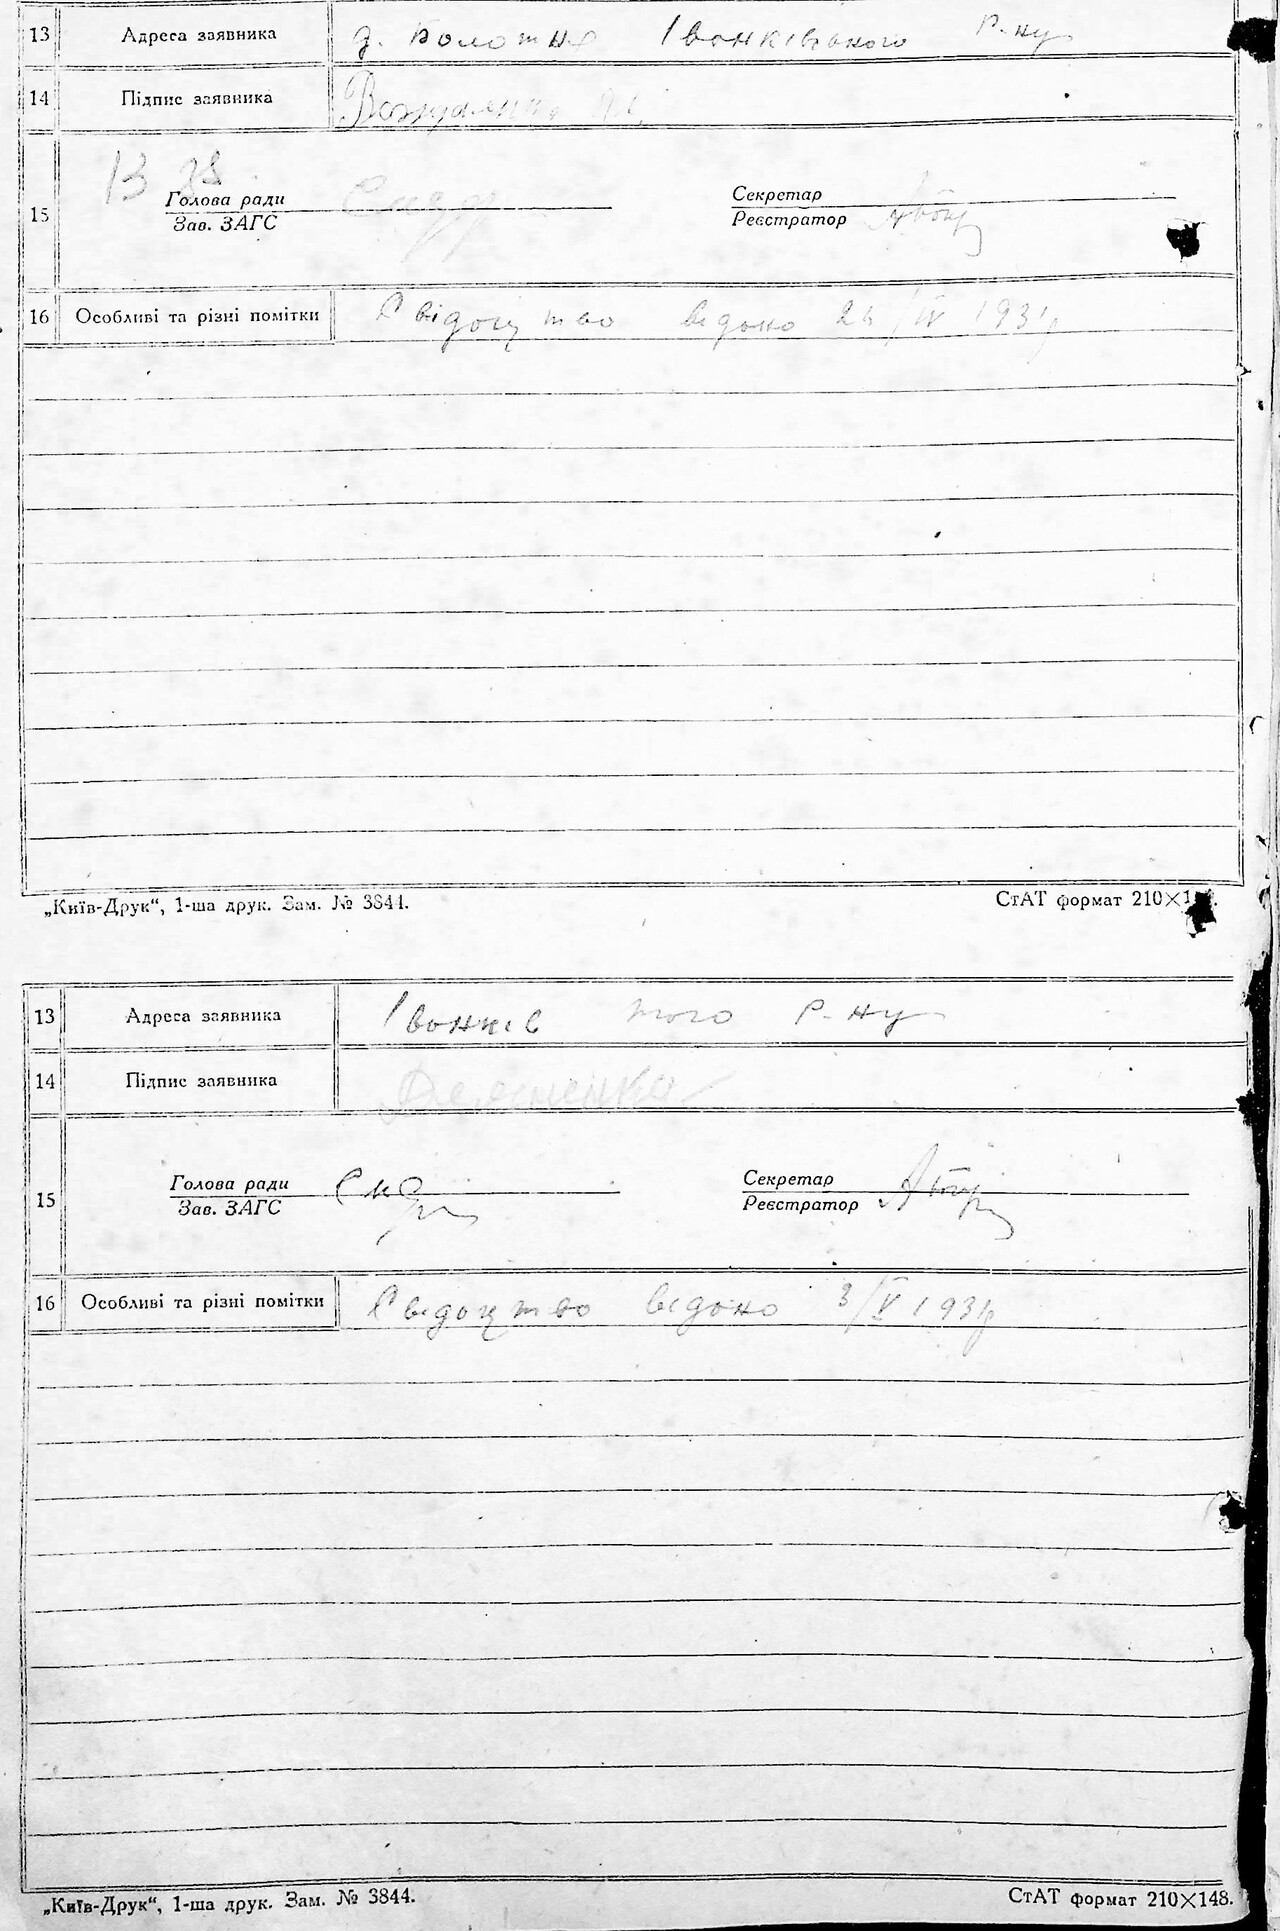 13 Адреса заявника д. Болотня Іванківського Р-ну
14 Підпис заявника
13
Голова ради Секретар
15
Зав. ЗАГС Реєстратор
16 Особливі та різні помітки Свідоцтво відано 24/IV 1931р
„Київ-Друк“, 1-ша друк. Зам. № 3844. СтАТ формат 210×1
13 Адреса заявника Іванків того Р-ну
14 Підпис заявника
Голова ради Секретар
15
Зав. ЗАГС Реєстратор
16 Особливі та різні помітки Свідоцтво відано 3/V 1931р
„Київ-Друк“, 1-ша друк. Зам. № 3844. СтАТ формат 210×148.